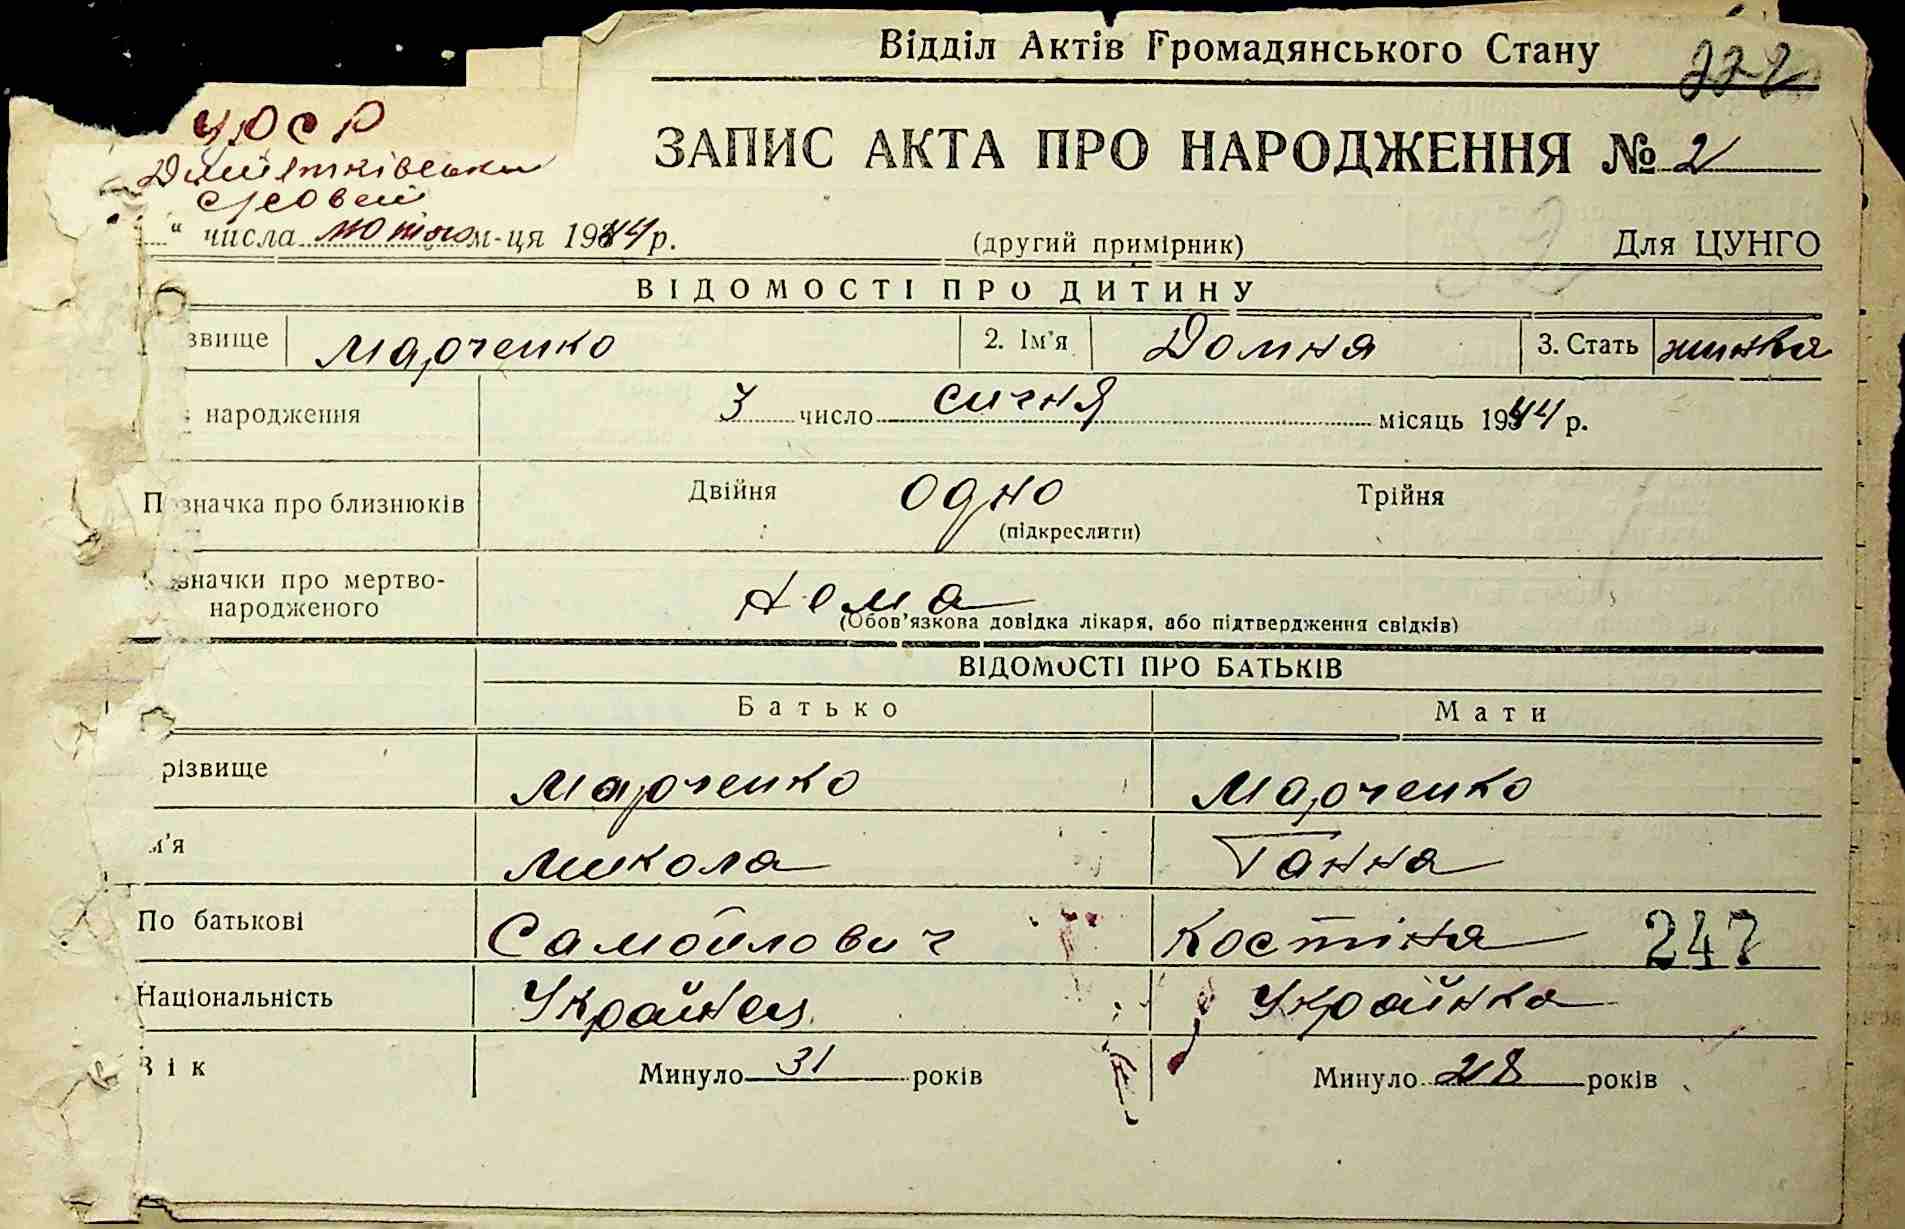 Відділ Актів Громадянського Стану 222
УРСР
ЗАПИС АКТА ПРО НАРОДЖЕННЯ № 2
" числа лютого м-ця 1944 р. (другий примірник) Для ЦУНГО
ВІДОМОСТІ ПРО ДИТИНУ
звище Марченко 2. Ім'я Домня 3. Стать жинка
народження 3 число сичня місяць 1944 р.
Позначка про близнюків Двійня одно Трійня
(підкреслити)
значки про мертво-
народженого нема
(Обов'язкова довідка лікаря, або підтвердження свідків)
ВІДОМОСТІ ПРО БАТЬКІВ
Батько Мати
різвище Марченко Марченко
м'я Микола Ганна
По батькові Самойлович Костівна 247
Національність Українец Українка
Вік Минуло 31 років Минуло 28 років